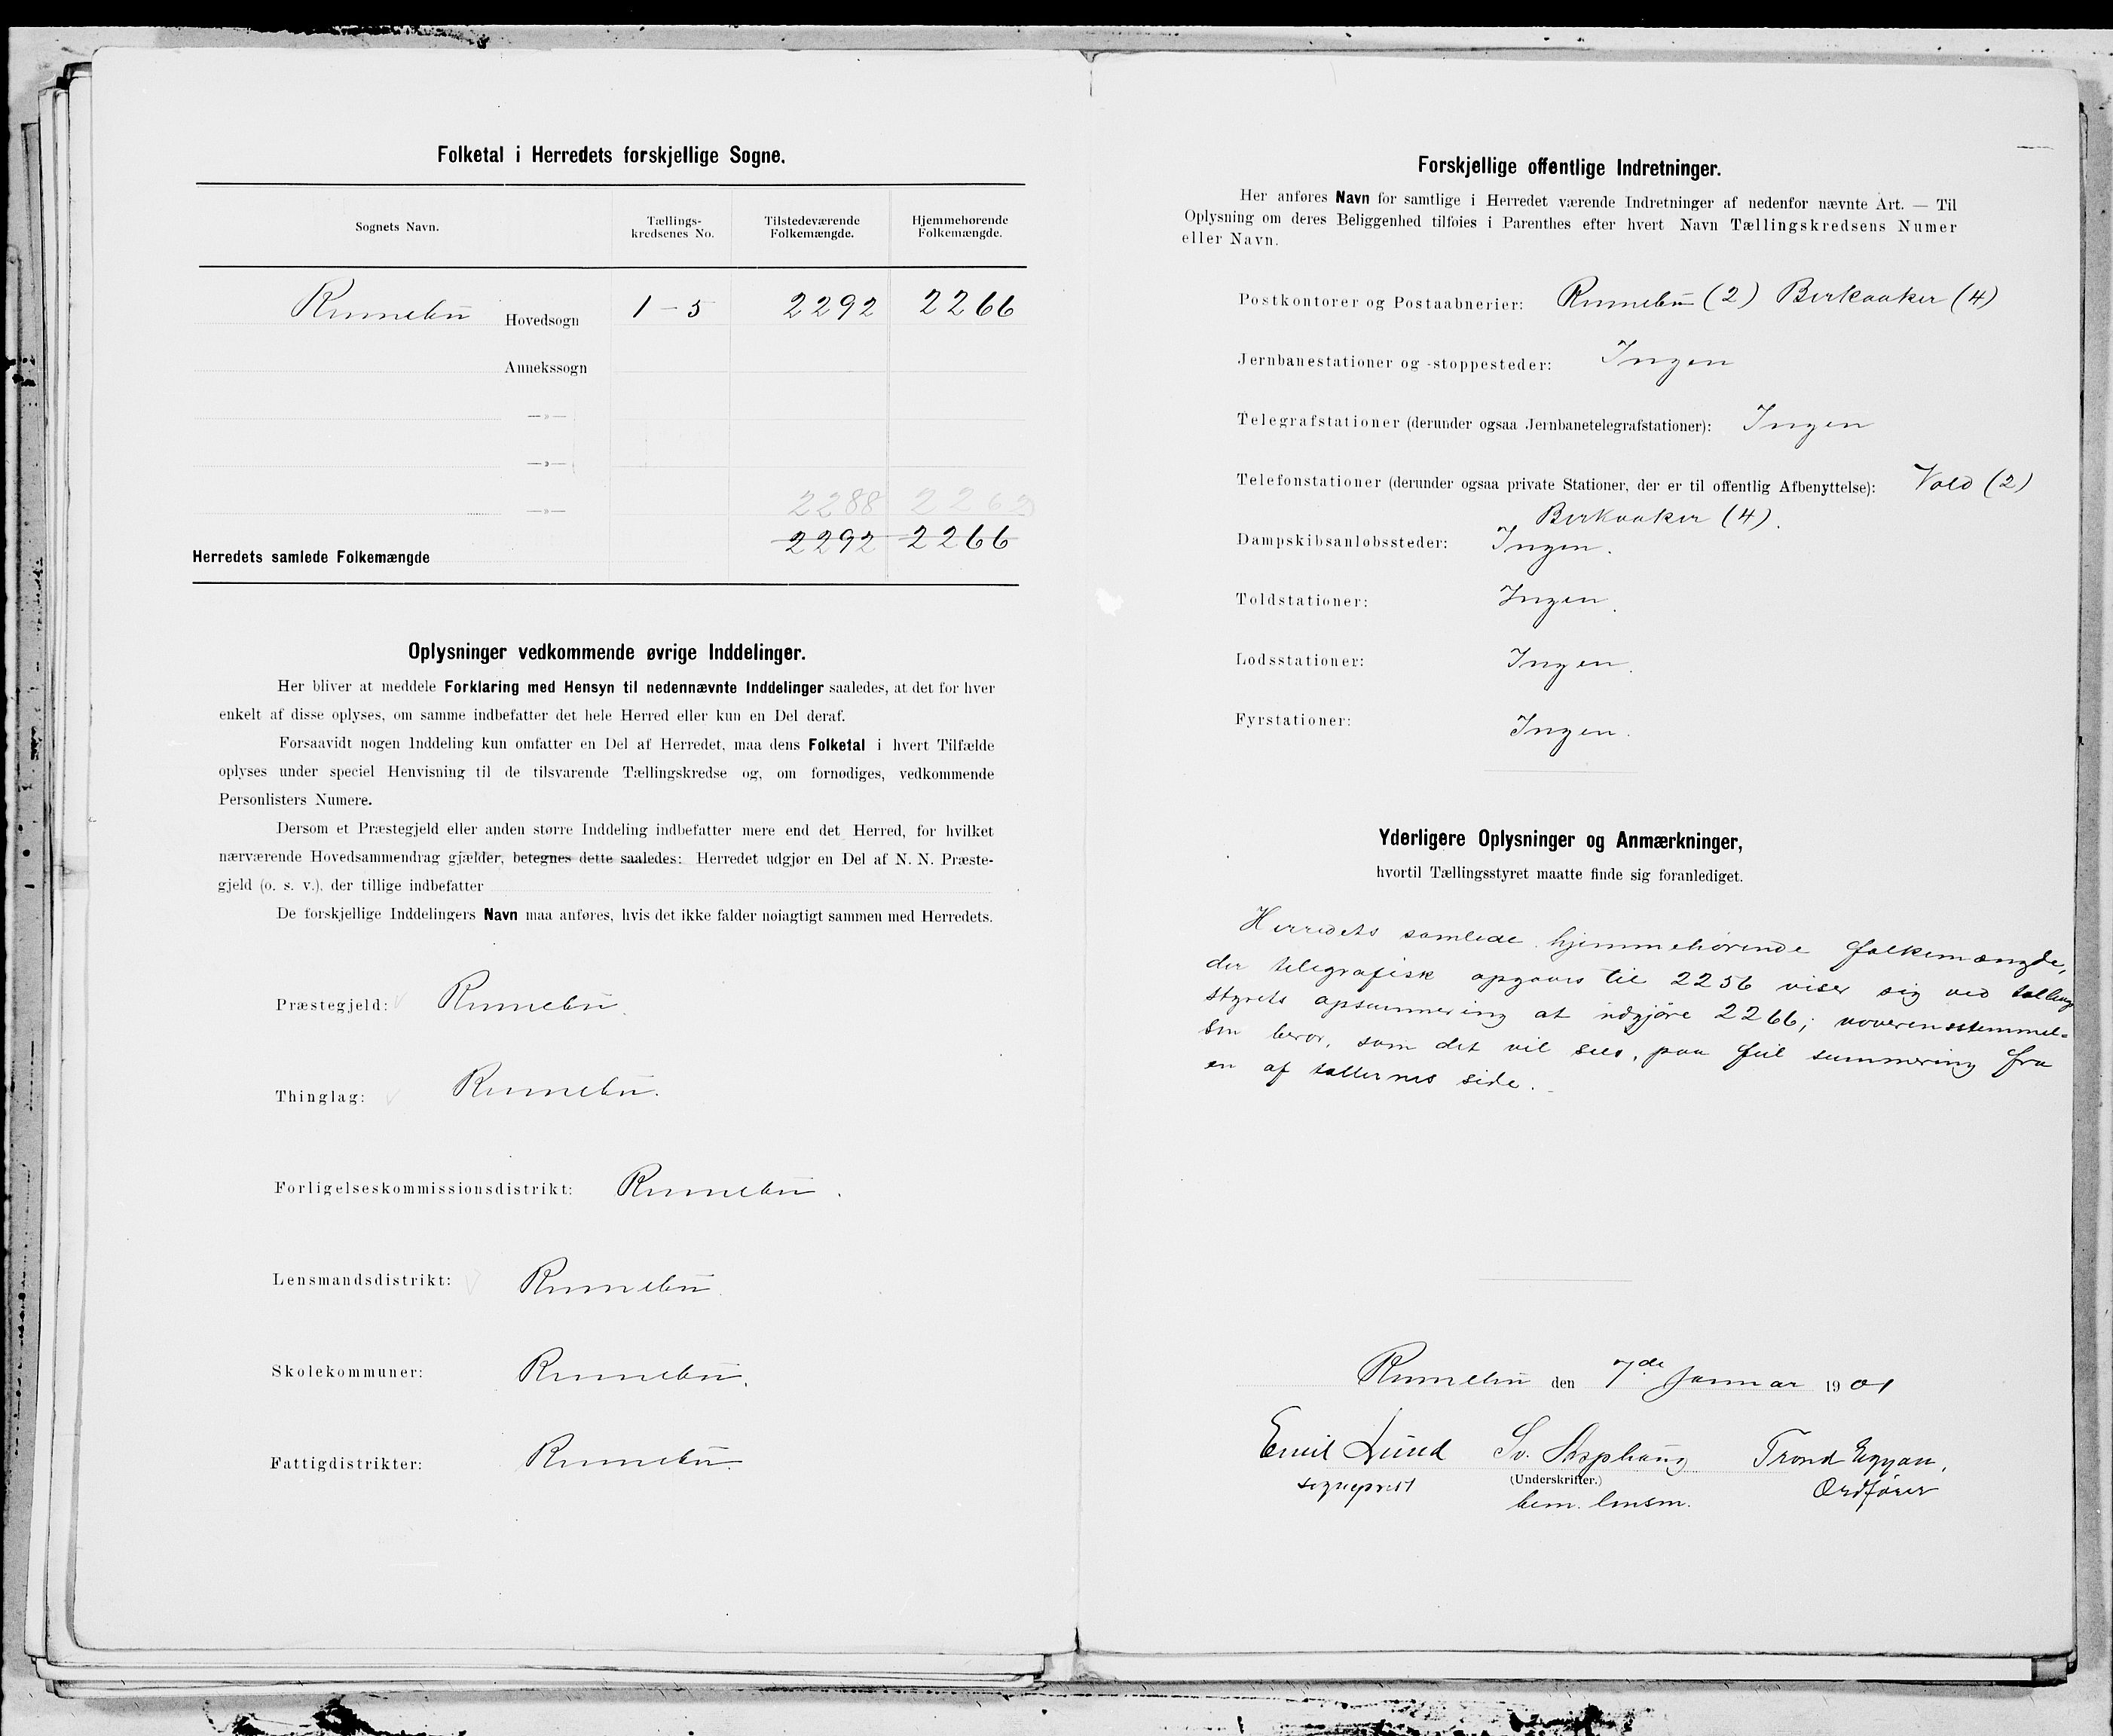 Folketal i Herredets forskjellige Sogne.
Sognets Navn.
Tællings-
kredsenes No.
Tilstedeværende
Folkemængde.
Hjemmehørende
Folkemængde.
Rennebu Hovedsogn 1-5 2292 2266
Annekssogn
—»—
—»—
—»— 2288 2262
Herredets samlede Folkemængde 2292 2266
Oplysninger vedkommende øvrige Inddelinger.
Her bliver at meddele Forklaring med Hensyn til nedennævnte Inddelinger saaledes, at det for hver
enkelt af disse oplyses, om samme indbefatter det hele Herred eller kun en Del deraf.
Forsaavidt nogen Inddeling kun omfatter en Del af Herredet, maa dens Folketal i hvert Tilfælde
oplyses under speciel Henvisning til de tilsvarende Tællingskredse og, om fornødiges, vedkommende
Personlisters Numere.
Dersom et Præstegjeld eller anden større Inddeling indbefatter mere end det Herred, for hvilket
nærværende Hovedsammendrag gjælder, betegnes dette saaledes: Herredet udgjør en Del af N. N. Præste-
gjeld (o. s. v.), der tillige indbefatter
De forskjellige Inddelingers Navn maa anføres, hvis det ikke falder nøiagtigt sammen med Herredets.
Præstegjeld: Rennebu.
Thinglag: Rennebu.
Forligelseskommissionsdistrikt: Rennebu.
Lensmandsdistrikt: Rennebu.
Skolekommuner: Rennebu.
Fattigdistrikter: Rennebu.
Forskjellige offentlige Indretninger.
Her anføres Navn for samtlige i Herredet værende Indretninger af nedenfor nævnte Art. — Til
Oplysning om deres Beliggenhed tilføies i Parenthes efter hvert Navn Tællingskredsens Numer
eller Navn.
Postkontorer og Postaabnerier: Rennebu (2) Berkaaker (4)
Jernbanestationer og -stoppesteder: Ingen
Telegrafstationer (derunder ogsaa Jernbanetelegrafstationer): Ingen
Telefonstationer (derunder ogsaa private Stationer, der er til offentlig Afbenyttelse): Vold (2)
Berkaaker (4).
Dampskibsanløbssteder: Ingen.
Toldstationer: Ingen.
Lodsstationer: Ingen.
Fyrstationer: Ingen.
Yderligere Oplysninger og Anmærkninger,
hvortil Tællingsstyret maatte finde sig foranlediget.
Herredets samlede hjemmehørende folkemængde,
der telegrafisk opgaves til 2256 viser sig ved tællings
styrets opsummering at udgjøre 2266; uoverensstemmel-
sen beror, som det vil sees, paa feil summering fra
en af tællernes side.
Rennebu den 7de Januar 1901
Emil Lund Sv. Trond
(Underskrifter.)
sogneprest lensm. Ordfører